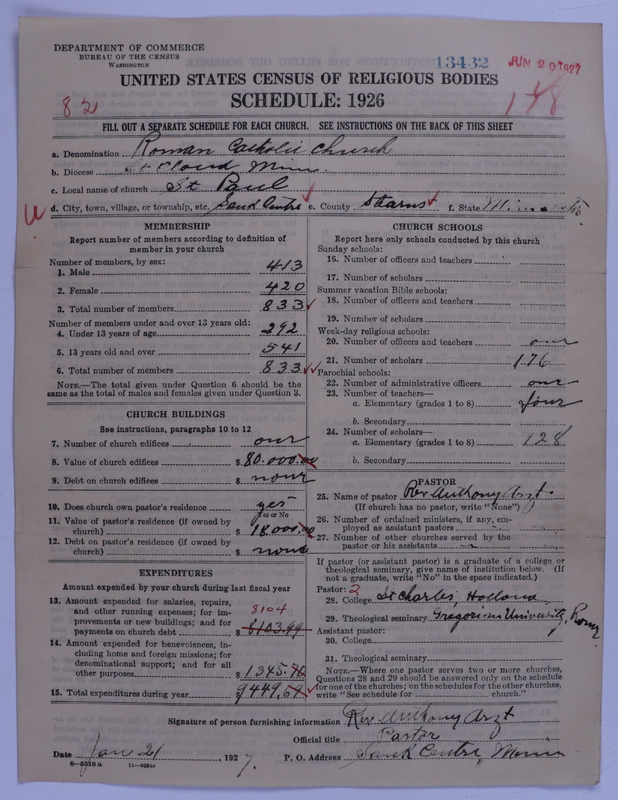 DEPARTMENT OF COMMERCE
BUREAU OF THE CENSUS
WASHINGTON
13432
JUN 20 1927
UNITED STATES CENSUS OF RELIGIOUS BODIES
SCHEDULE: 1926
82
148
FILL OUT A SEPARATE SCHEDULE FOR EACH CHURCH. SEE INSTRUCTIONS ON THE BACK OF THIS SHEET
a. Denomination Roman Catholic Church
b. Diocese St Cloud Minn.
c. Local name of church St Paul
d. City, town, village, or township, etc. Sauk Centre e. County Stearns f. State Minnesota
MEMBERSHIP
Report number of members according to definition of
member in your church
Number of members, by sex:
1. Male 413
2. Female 420
3. Total number of members 833
Number of members under and over 13 years old:
4. Under 13 years of age 292
5. 13 years old and over 541
6. Total number of members 833
NOTE.—The total given under Question 6 should be the
same as the total of males and females given under Question 3.
CHURCH BUILDINGS
See instructions, paragraphs 10 to 12
7. Number of church edifices one
8. Value of church edifices $ 80.000.00
9. Debt on church edifices $ none
10. Does church own pastor's residence yes
Yes or No
11. Value of pastor's residence (if owned by
church) $ 18000.00
12. Debt on pastor's residence (if owned by
church) $ none
EXPENDITURES
Amount expended by your church during last fiscal year
13. Amount expended for salaries, repairs,
and other running expenses; for im-
provements or new buildings; and for
payments on church debt 8104 $ 8103.99
14. Amount expended for benevolences, in-
cluding home and foreign missions; for
denominational support; and for all
other purposes $ 1345.70
15. Total expenditures during year 9449.69
CHURCH SCHOOLS
Report here only schools conducted by this church
Sunday schools:
16. Number of officers and teachers
17. Number of scholars
Summer vacation Bible schools:
18. Number of officers and teachers
19. Number of scholars
Week-day religious schools:
20. Number of officers and teachers one
21. Number of scholars 176
Parochial schools:
22. Number of administrative officers one
23. Number of teachers—
a. Elementary (grades 1 to 8) four
b. Secondary
24. Number of scholars—
a. Elementary (grades 1 to 8) 128
b. Secondary
PASTOR
25. Name of pastor Rev Anthony Arzt.
(If church has no pastor, write "None")
26. Number of ordained ministers, if any, em-
ployed as assistant pastors
27. Number of other churches served by the
pastor or his assistants
If pastor (or assistant pastor) is a graduate of a college or
theological seminary, give name of institution below. (If
not a graduate, write "No" in the space indicated.)
Pastor: 2
28. College St Charles, Holland
29. Theological seminary Gregorian University, Rome
Assistant pastor:
30. College
31. Theological seminary
NOTE.—Where one pastor serves two or more churches,
Questions 28 and 29 should be answered only on the schedule
for one of the churches; on the schedules for the other churches,
write "See schedule for church."
Signature of person furnishing information Rev Anthony Arzt
Official title Pastor
Date Jan 21 1927. P. O. Address Sauk Centre, Minn